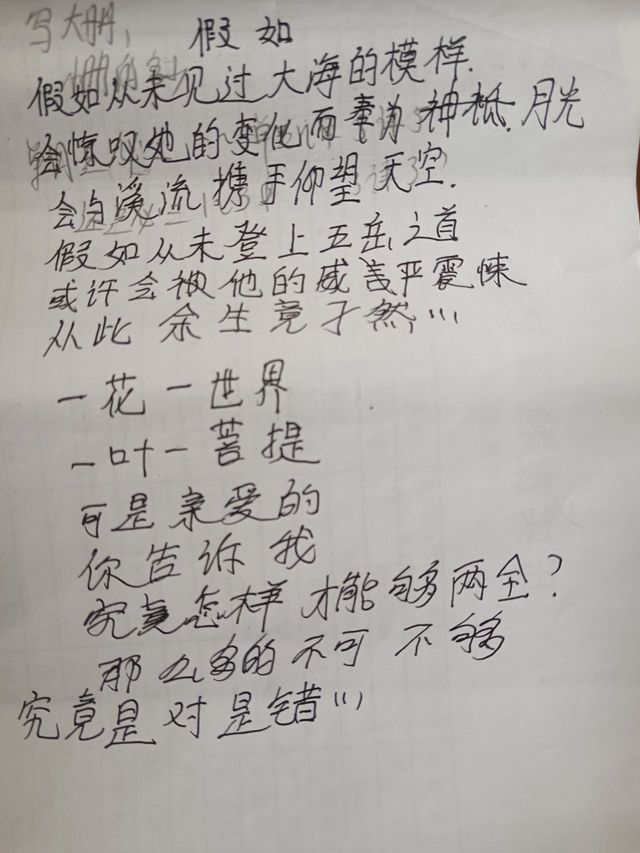 写大册,
假如
假如从未见过大海的模样.
会惊叹她的变化而奉为神秘.月光
会与溪流携手仰望天空.
假如从未登上五岳之首
或许会被他的威言严震悚
从此余生竟孑然...
一花一世界
一叶一菩提
可是亲爱的
你告诉我
究竟怎样才能够两全?
那么多的不可不够
究竟是对是错...